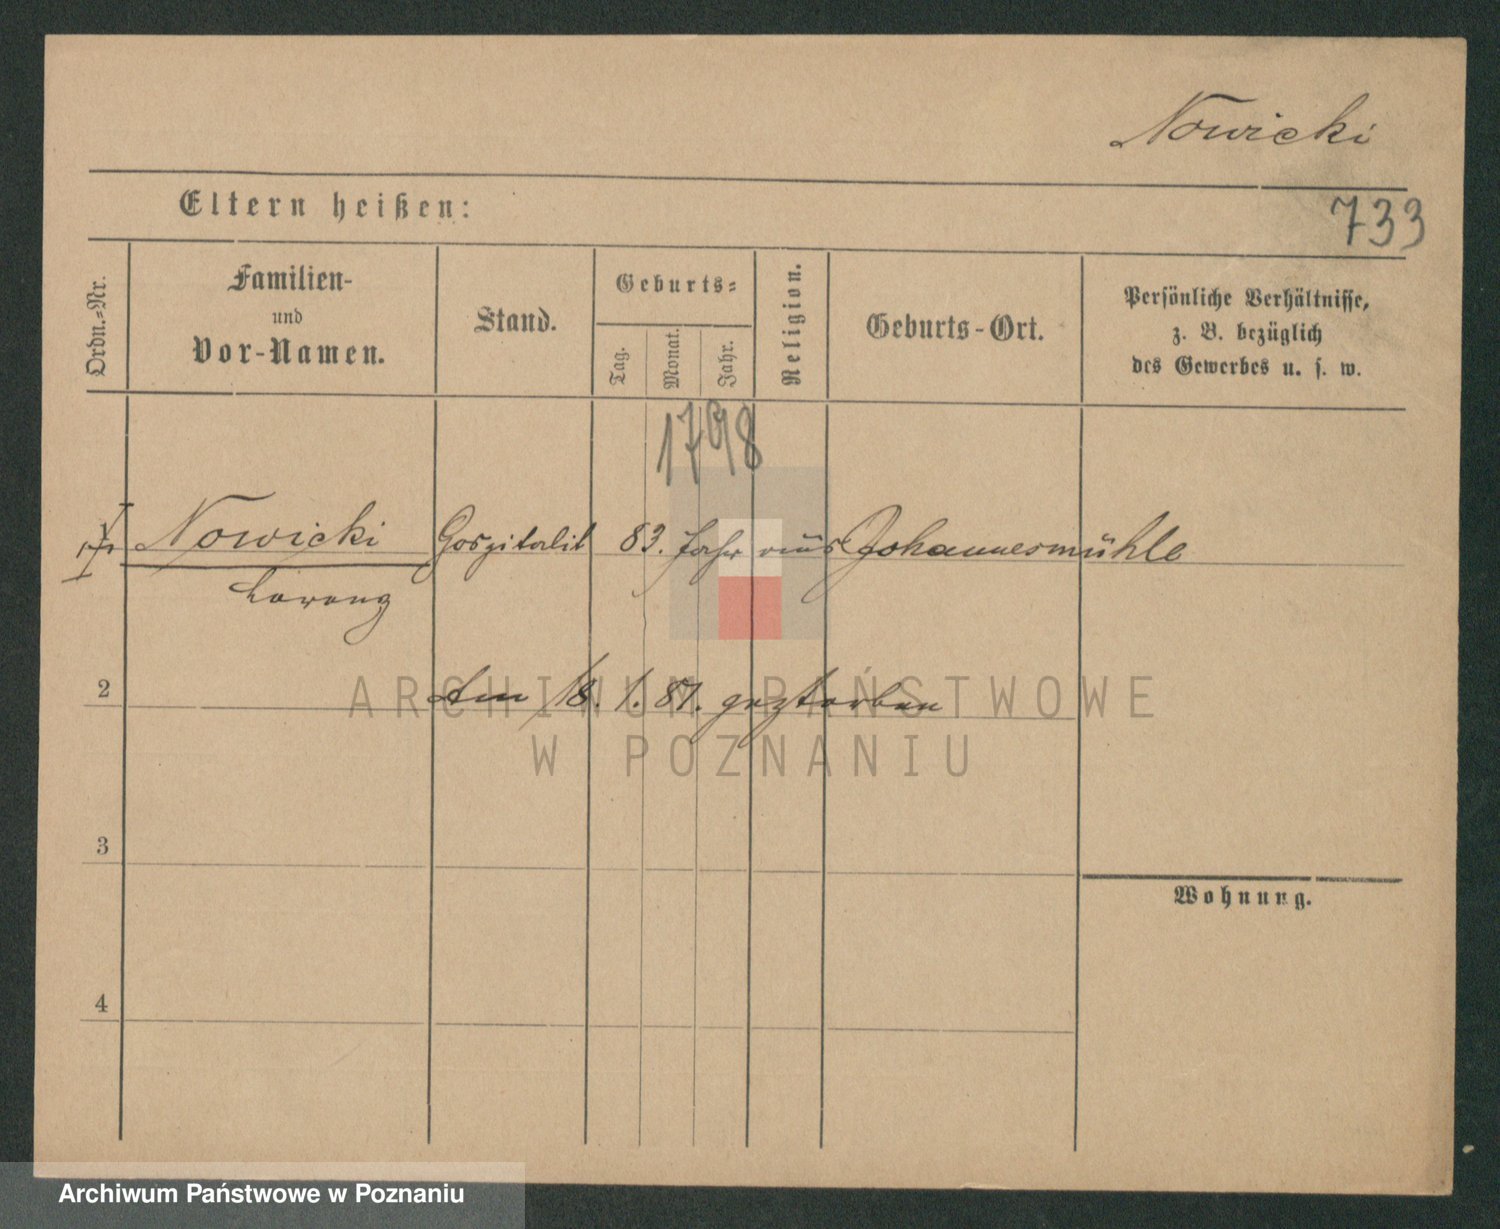 Nowicki
Eltern heißen:
733
Ordn.-Nr.
Familien-
und
Vor-Namen.
Stand.
Geburts-
Tag.
Monat.
Jahr.
Religion.
Geburts-Ort.
Persönliche Verhältnisse,
z. B. bezüglich
des Gewerbes u. s. w.
1798
Nowicki Hospitalit 83. Jahr aus Johannesmühle
Lorenz
2 Am 18. 1. 81. gestorben
ARCHIWUM PAŃSTWOWE
W POZNANIU
3
Wohnung.
4
Archiwum Państwowe w Poznaniu